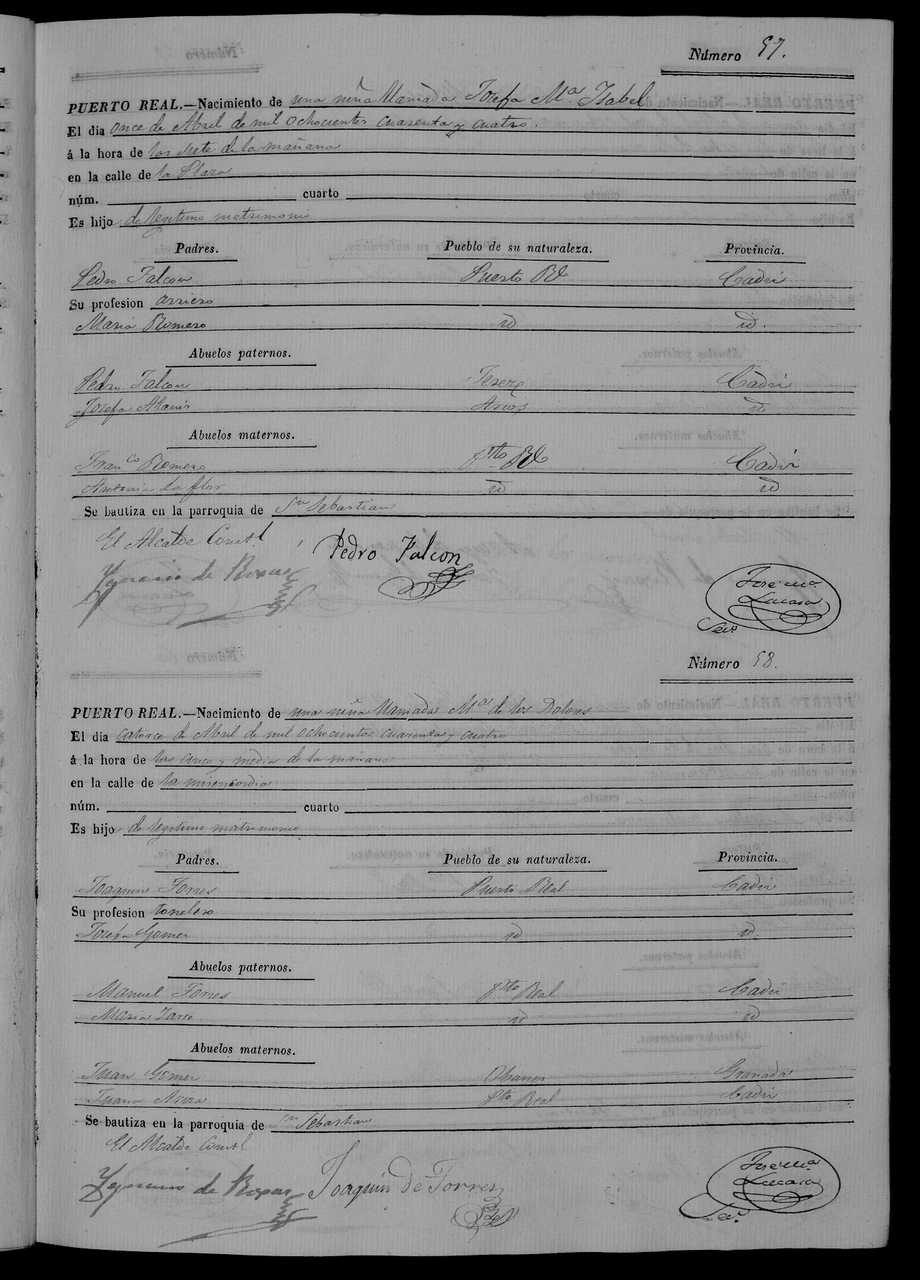 Número 57.
PUERTO REAL.—Nacimiento de una niña llamada Josefa Mª Isabel
El dia once de Abril de mil ochocientos cuarenta y cuatro.
á la hora de las siete de la mañana
en la calle de la Plaza
núm. cuarto
Es hijo de legitimo matrimonio
Padres. Pueblo de su naturaleza. Provincia.
Pedro Falcon Puerto Rl Cadiz
Su profesion arriero
Maria Romero id id.
Abuelos paternos.
Pedro Falcon Jerez Cadiz
Josefa Arcos id
Abuelos maternos.
Franco Romero Pto Rl Cadiz
Antonia La flor id id
Se bautiza en la parroquia de Sn Sebastian
El Alcalde Constl
Ygnacio de Pedro Falcon
José Mª
Lacasa
Seco.
Número 58.
PUERTO REAL.—Nacimiento de una niña llamada Mª de los Dolores
El dia catorce de Abril de mil ochocientos cuarenta y cuatro
á la hora de las cinco y media de la mañana
en la calle de la misericordia
núm. cuarto
Es hijo de legitimo matrimonio
Padres. Pueblo de su naturaleza. Provincia.
Joaquin Torres Puerto Real Cadiz
Su profesion tonelero
Josefa Gomez id id.
Abuelos paternos.
Manuel Torres Pto Real Cadiz
Maria id id
Abuelos maternos.
Juan Gomez Granada
Juana Pto Real Cadiz
Se bautiza en la parroquia de Sn Sebastian
El Alcalde Constl
Ygnacio de Joaquin de Torres
José Mª
Lacasa
Seco.